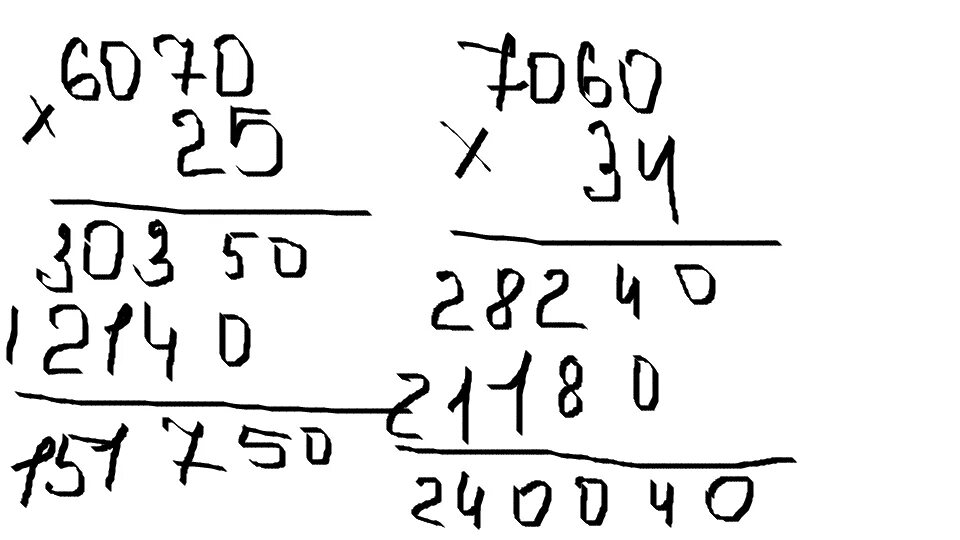 6070
× 25
30350
12140
151750
7060
× 34
28240
21180
240040